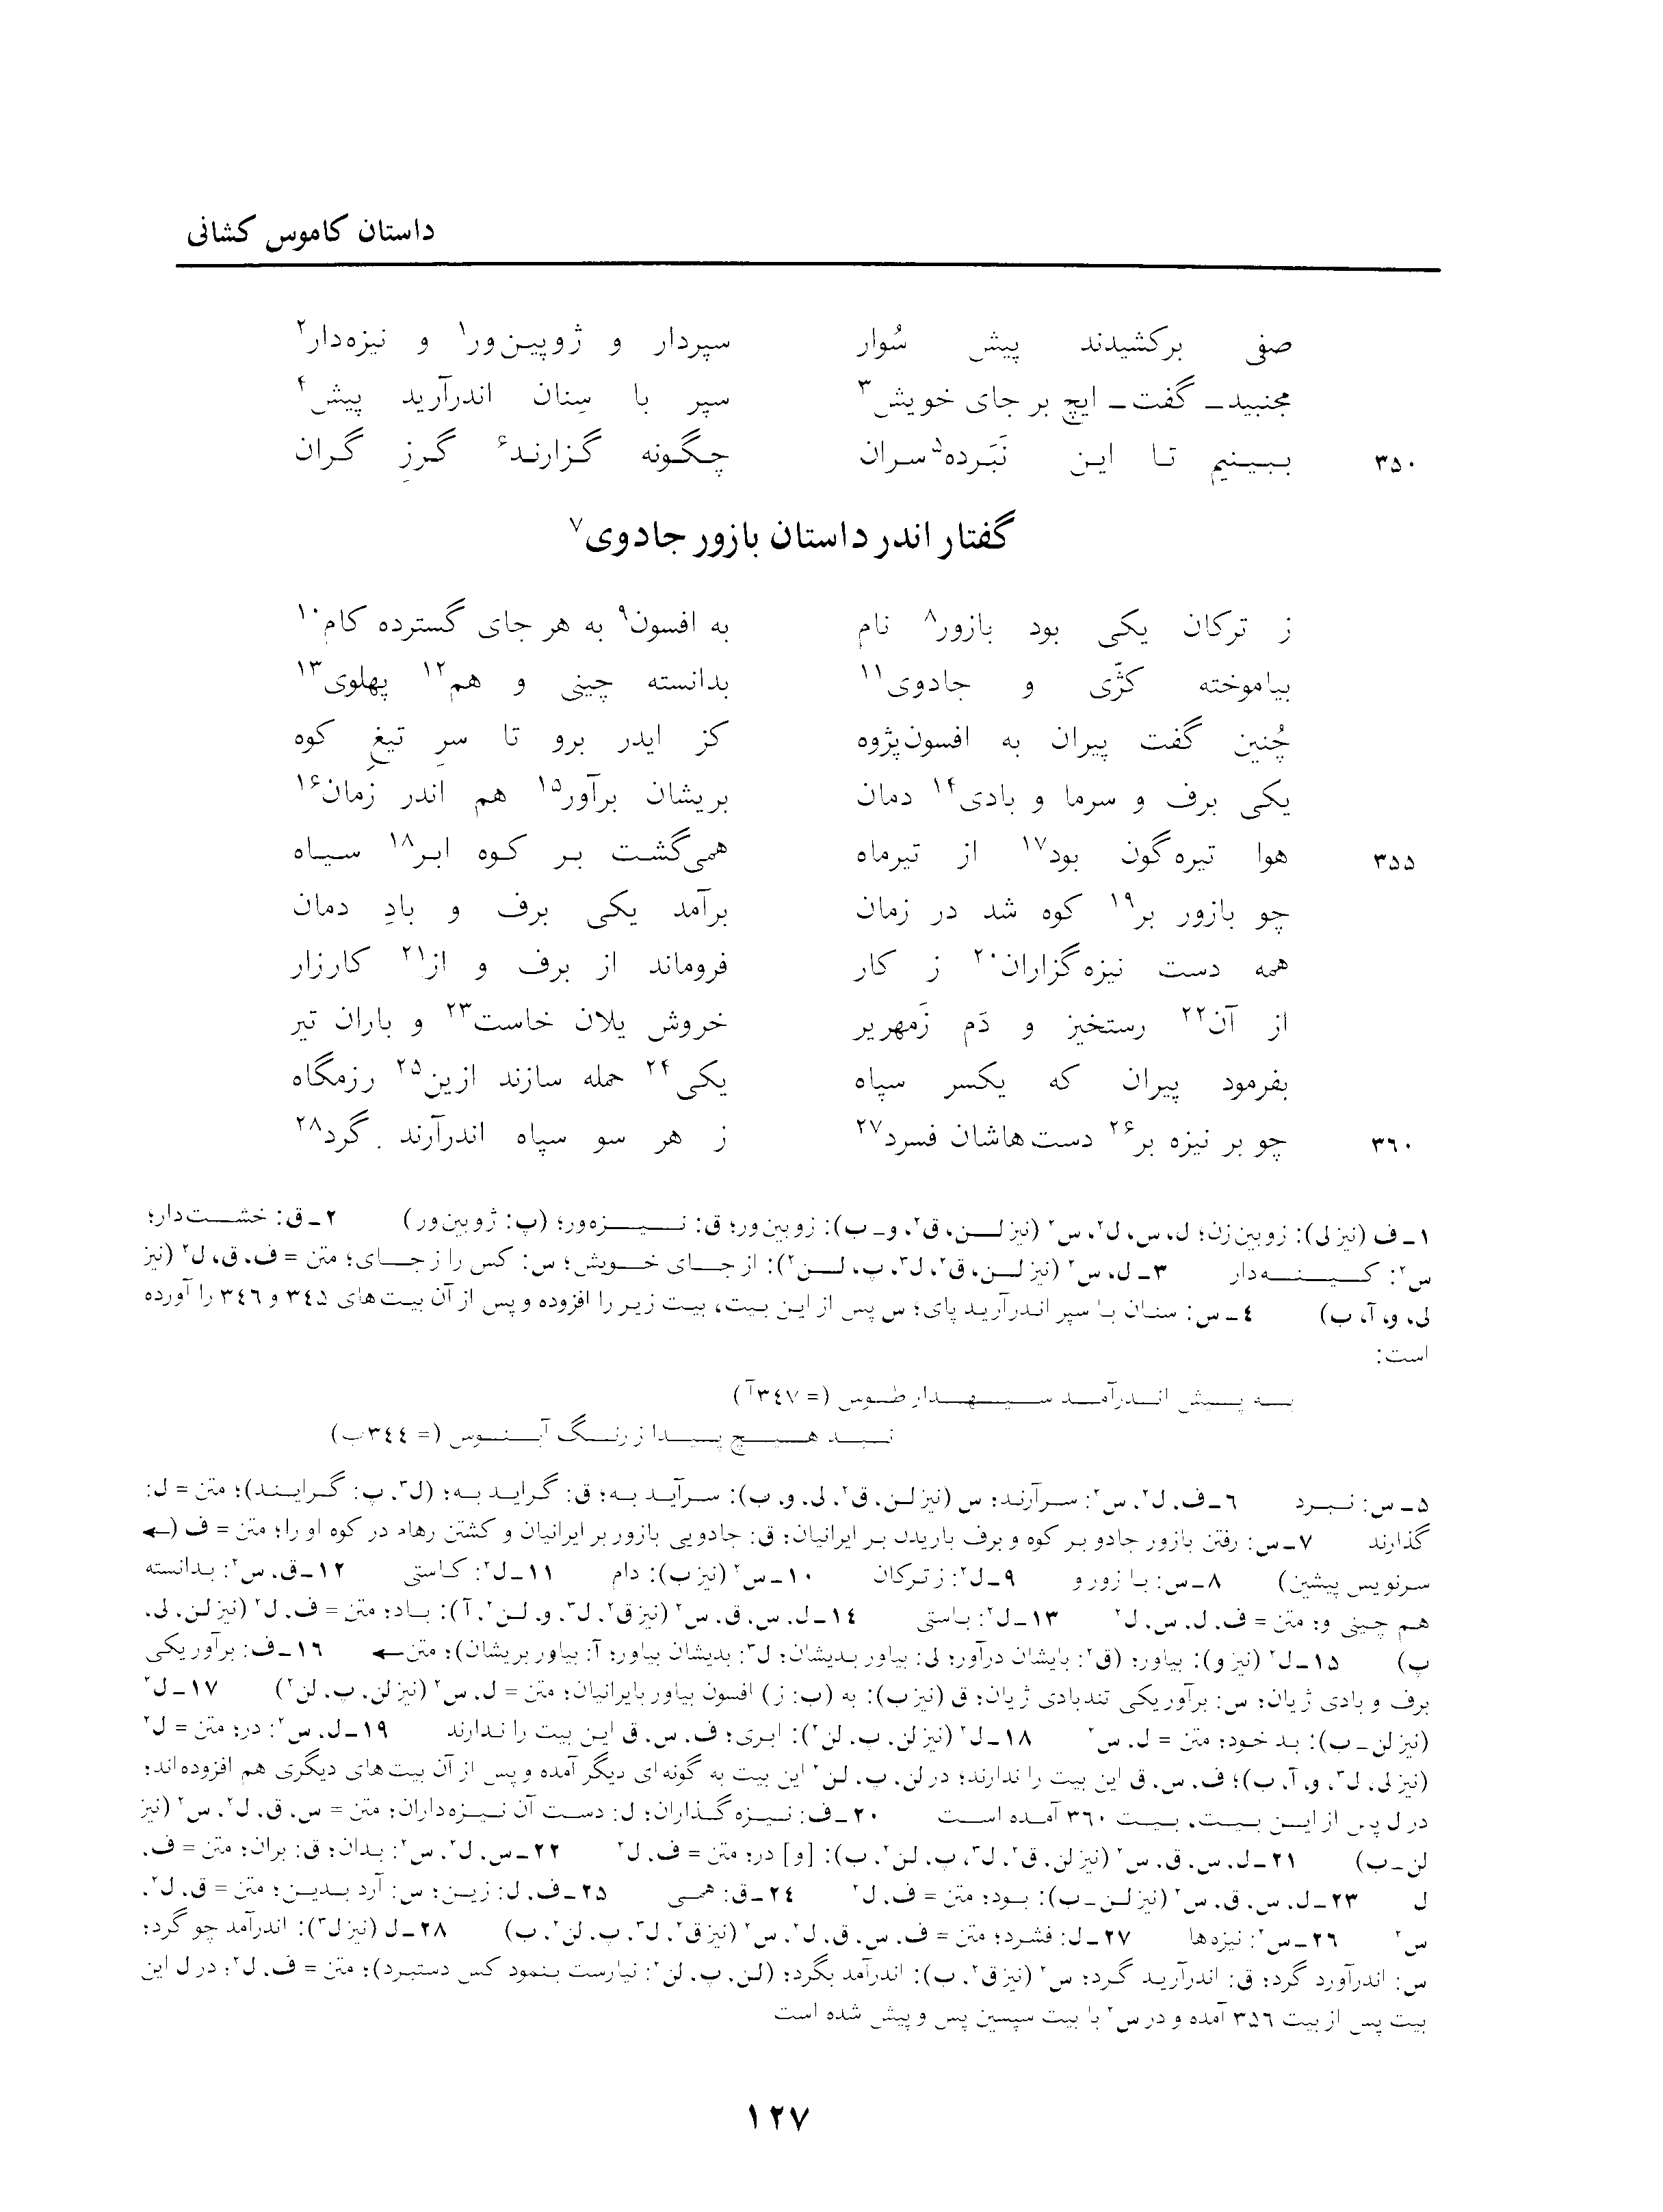 داستان کاموس کشانی
صفی برکشیدند پیش سُوار سپردار و ژوپین‌ور۱ و نیزه‌دار۲
مجنبید ـ گفت ـ ایچ بر جای خویش۳ سپر با سِنان اندرآرید پیش۴
۳۵۰ ببینیم تا این نَبَرده۵ سران چگونه گزارند۶ گرزِ گران
گفتار اندر داستان بازور جادوی۷
ز ترکان یکی بود بازور۸ نام به افسون۹ به هر جای گسترده کام۱۰
بیاموخته کژّی و جادوی۱۱ بدانسته چینی و هم۱۲ پهلوی۱۳
چُنین گفت پیران به افسون‌پژوه کز ایدر برو تا سرِ تیغِ کوه
یکی برف و سرما و بادی۱۴ دمان بریشان برآور۱۵ هم اندر زمان۱۶
۳۵۵ هوا تیره‌گون بود۱۷ از تیرماه همی‌گشت بر کوه ابر۱۸ سیاه
چو بازور بر۱۹ کوه شد در زمان برآمد یکی برف و بادِ دمان
همه دست نیزه‌گزاران۲۰ ز کار فروماند از برف و از۲۱ کارزار
از آن۲۲ رستخیز و دَم زَمهریر خروش یلان خاست۲۳ و باران تیر
بفرمود پیران که یکسر سپاه یکی۲۴ حمله سازند ازین۲۵ رزمگاه
۳۶۰ چو بر نیزه بر۲۶ دست‌هاشان فسرد۲۷ ز هر سو سپاه اندرآرند گرد۲۸
۱ـ ف (نیز لی): زوبین‌زن؛ ل، س، ل۲، س۲ (نیز لن، ق۲، و ـ ب): زوبین‌ور؛ ق: نیزه‌ور؛ (پ: ژوبین‌ور) ۲ـ ق: خشت‌دار؛
س۲: کینه‌دار ۳ـ ل، س۲ (نیز لن، ق۲، ل۳، پ، لن۲): از جای خویش؛ س: کس را ز جای؛ متن = ف، ق، ل۲ (نیز
لی، و، آ، ب) ٤ـ س: سنان با سپر اندرآرید پای؛ س پس از این بیت، بیت زیر را افزوده و پس از آن بیت‌های ۳٤۵ و ۳٤٦ را آورده
است:
به پیش اندرآمد سپهدار طوس (= ۳٤۷آ)
نبد هیچ پیدا ز رنگ آبنوس (= ۳٤٤ب)
۵ـ س: نبرد ٦ـ ف، ل۲، س۲: سرآرند؛ س (نیز لن، ق۲، لی، و، ب): سرآید به؛ ق: گراید به؛ (ل۳، پ: گرایند)؛ متن = ل:
گذارند ۷ـ س: رفتن بازور جادو بر کوه و برف باریدن بر ایرانیان؛ ق: جادویی بازور بر ایرانیان و کشتن رهام در کوه او را؛ متن = ف (←
سرنویس پیشین) ۸ـ س: با زور و ۹ـ ل۲: ز ترکان ۱۰ـ س۲ (نیز ب): دام ۱۱ـ ل۲: کاستی ۱۲ـ ق، س۲: بدانسته
هم چینی و؛ متن = ف، ل، س، ل۲ ۱۳ـ ل۲: باستی ۱٤ـ ل، س، ق، س۲ (نیز ق۲، ل۳، و، لن۲، آ): باد؛ متن = ف، ل۲ (نیز لن، لی،
پ) ۱۵ـ ل۲ (نیز و): بیاور؛ (ق۲: بایشان درآور؛ لی: بیاور بدیشان؛ ل۳: بدیشان بیاور؛ آ: بیاور بریشان)؛ متن ← ۱٦ـ ف: برآور یکی
برف و بادی ژیان؛ س: برآور یکی تندبادی ژیان؛ ق (نیز ب): به (ب: ز) افسون بیاور بایرانیان؛ متن = ل، س۲ (نیز لن، پ، لن۲) ۱۷ـ ل۲
(نیز لن ـ ب): بد خود؛ متن = ل، س۲ ۱۸ـ ل۲ (نیز لن، پ، لن۲): ابری؛ ف، س، ق این بیت را ندارند ۱۹ـ ل، س۲: در؛ متن = ل۲
(نیز لی، ل۳، و، آ، ب)؛ ف، س، ق این بیت را ندارند؛ در لن، پ، لن۲ این بیت به گونه‌ای دیگر آمده و پس از آن بیت‌های دیگری هم افزوده‌اند؛
در ل پس از این بیت، بیت ۳٦۰ آمده است ۲۰ـ ف: نیزه گذاران؛ ل: دست آن نیزه‌داران؛ متن = س، ق، ل۲، س۲ (نیز
لن ـ ب) ۲۱ـ ل، س، ق، س۲ (نیز لن، ق۲، ل۳، پ، لن۲، ب): [و] در؛ متن = ف، ل۲ ۲۲ـ س، ل۲، س۲: بدان؛ ق: بران؛ متن = ف،
ل ۲۳ـ ل، س، ق، س۲ (نیز لن ـ ب): بود؛ متن = ف، ل۲ ۲٤ـ ق: همی ۲۵ـ ف، ل: زین؛ س: آرد بدین؛ متن = ق، ل۲،
س۲ ۲٦ـ س۲: نیزه‌ها ۲۷ـ ل: فشرد؛ متن = ف، س، ق، ل۲، س۲ (نیز ق۲، ل۳، پ، لن۲، ب) ۲۸ـ ل (نیز ل۳): اندرآمد چو گرد؛
س: اندرآورد گرد؛ ق: اندرآرید گرد؛ س۲ (نیز ق۲، ب): اندرآمد بگرد؛ (لن، پ، لن۲: نیارست بنمود کس دستبرد)؛ متن = ف، ل۲؛ در ل این
بیت پس از بیت ۳۵٦ آمده و در س۲ با بیت سپسین پس و پیش شده است
۱۲۷